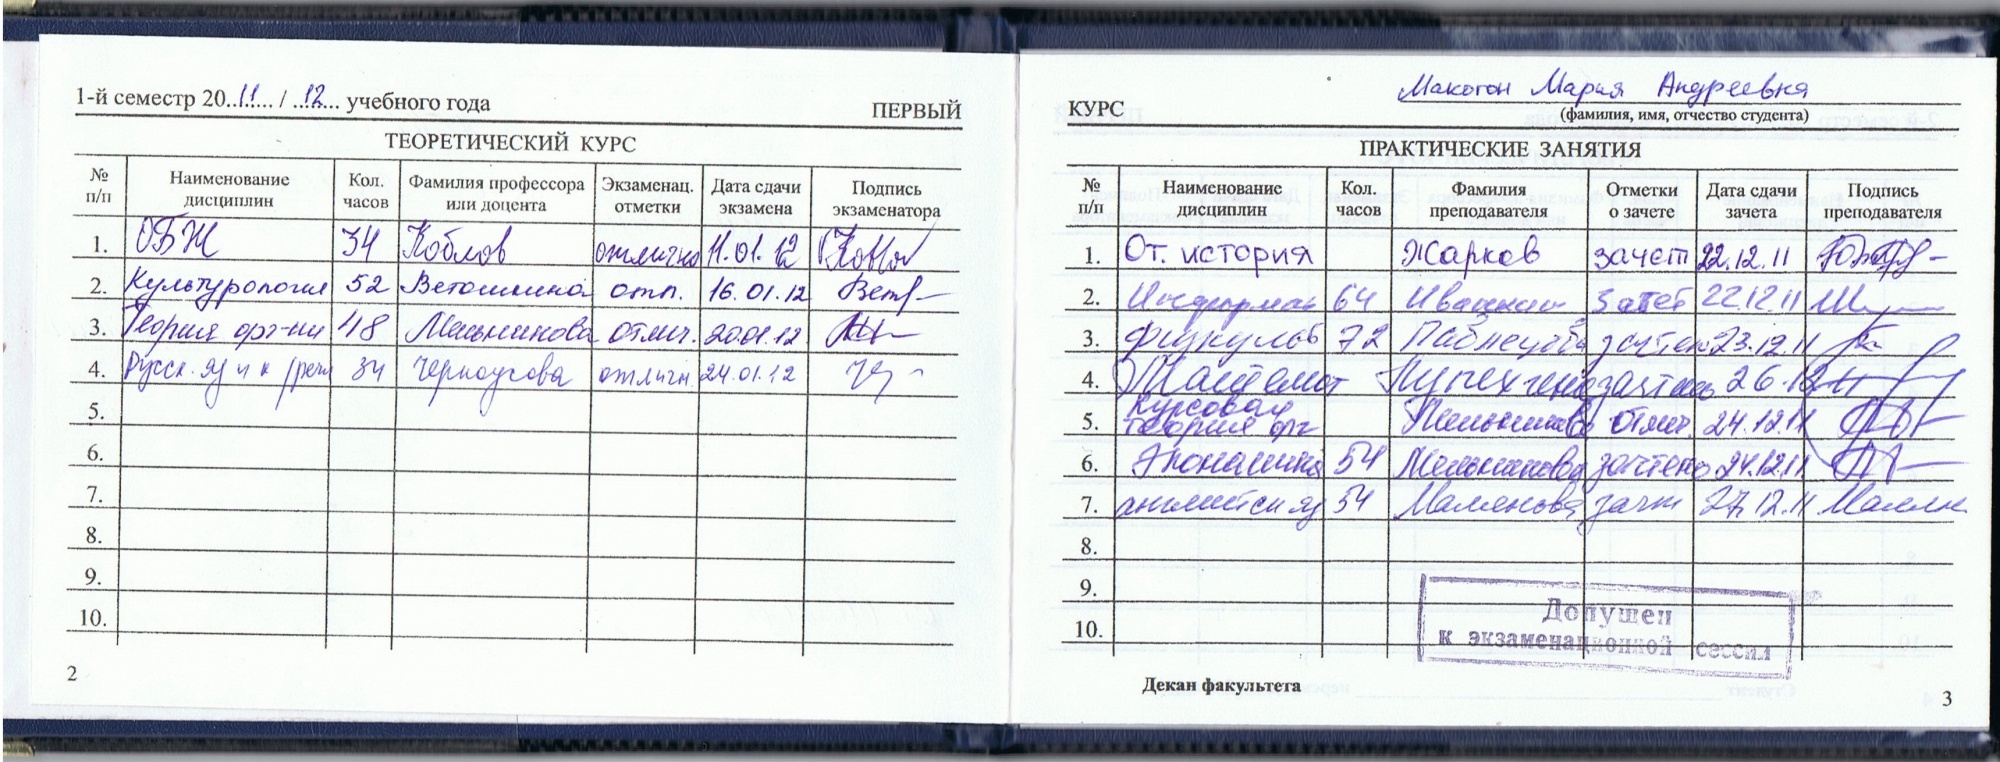 1-й семестр 20..11.... / ..12... учебного года
ПЕРВЫЙ
ТЕОРЕТИЧЕСКИЙ КУРС
№ п/п Наименование дисциплин Кол. часов Фамилия профессора или доцента Экзаменац. отметки Дата сдачи экзамена Подпись экзаменатора
1. ОБЖ 34 Коблов отлично 11.01.12
2. Культурология 52 Ветошкина отл. 16.01.12
3. Теория орг-ии 48 Мельникова отлич. 20.01.12
4. Русск. яз и к/речи 34 Черноусова отличн 24.01.12
5.
6.
7.
8.
9.
10.
2
Макогон Мария Андреевна
КУРС
(фамилия, имя, отчество студента)
ПРАКТИЧЕСКИЕ ЗАНЯТИЯ
№ п/п Наименование дисциплин Кол. часов Фамилия преподавателя Отметки о зачете Дата сдачи зачета Подпись преподавателя
1. От. история Жарков зачет 22.12.11
2. Информат 64 Ивашкин зачет 22.12.11
3. Физкульт 72 зачтено 23.12.11
4. Математ зачтено 26.12.11
5. Курсовая теория орг Мельникова отлич. 24.12.11
6. Экономика 54 Мельникова зачтено 24.12.11
7. английск яз 54 Маменова зачт 27.12.11
8.
9.
10.
Допущен
к экзаменационной сессии
Декан факультета
3